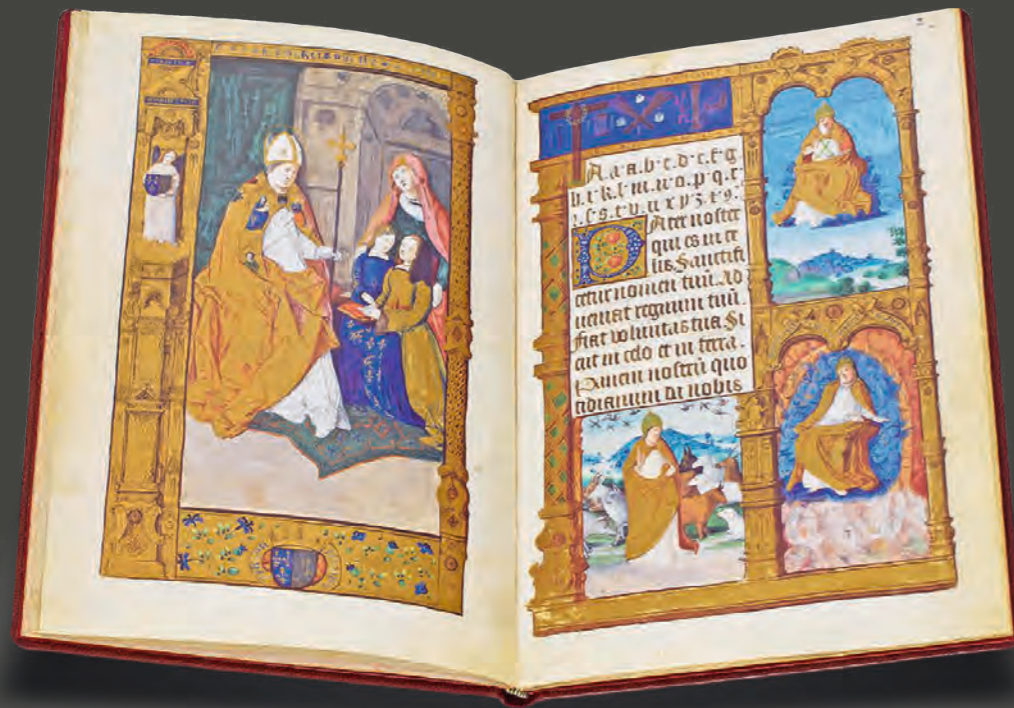 A.a.a.b.c.d.e.f.g
h.i.k.l.m.n.o.p.q.r
ſ.s.t.v.u.x.y.z.
Pater noster
qui es in ce
lis. Sanctifi
cetur nomen tuū. Ad
ueniat regnum tuū.
fiat voluntas tua. Si
cut in celo et in terra.
Panem nostrū quo
tidianum da nobis